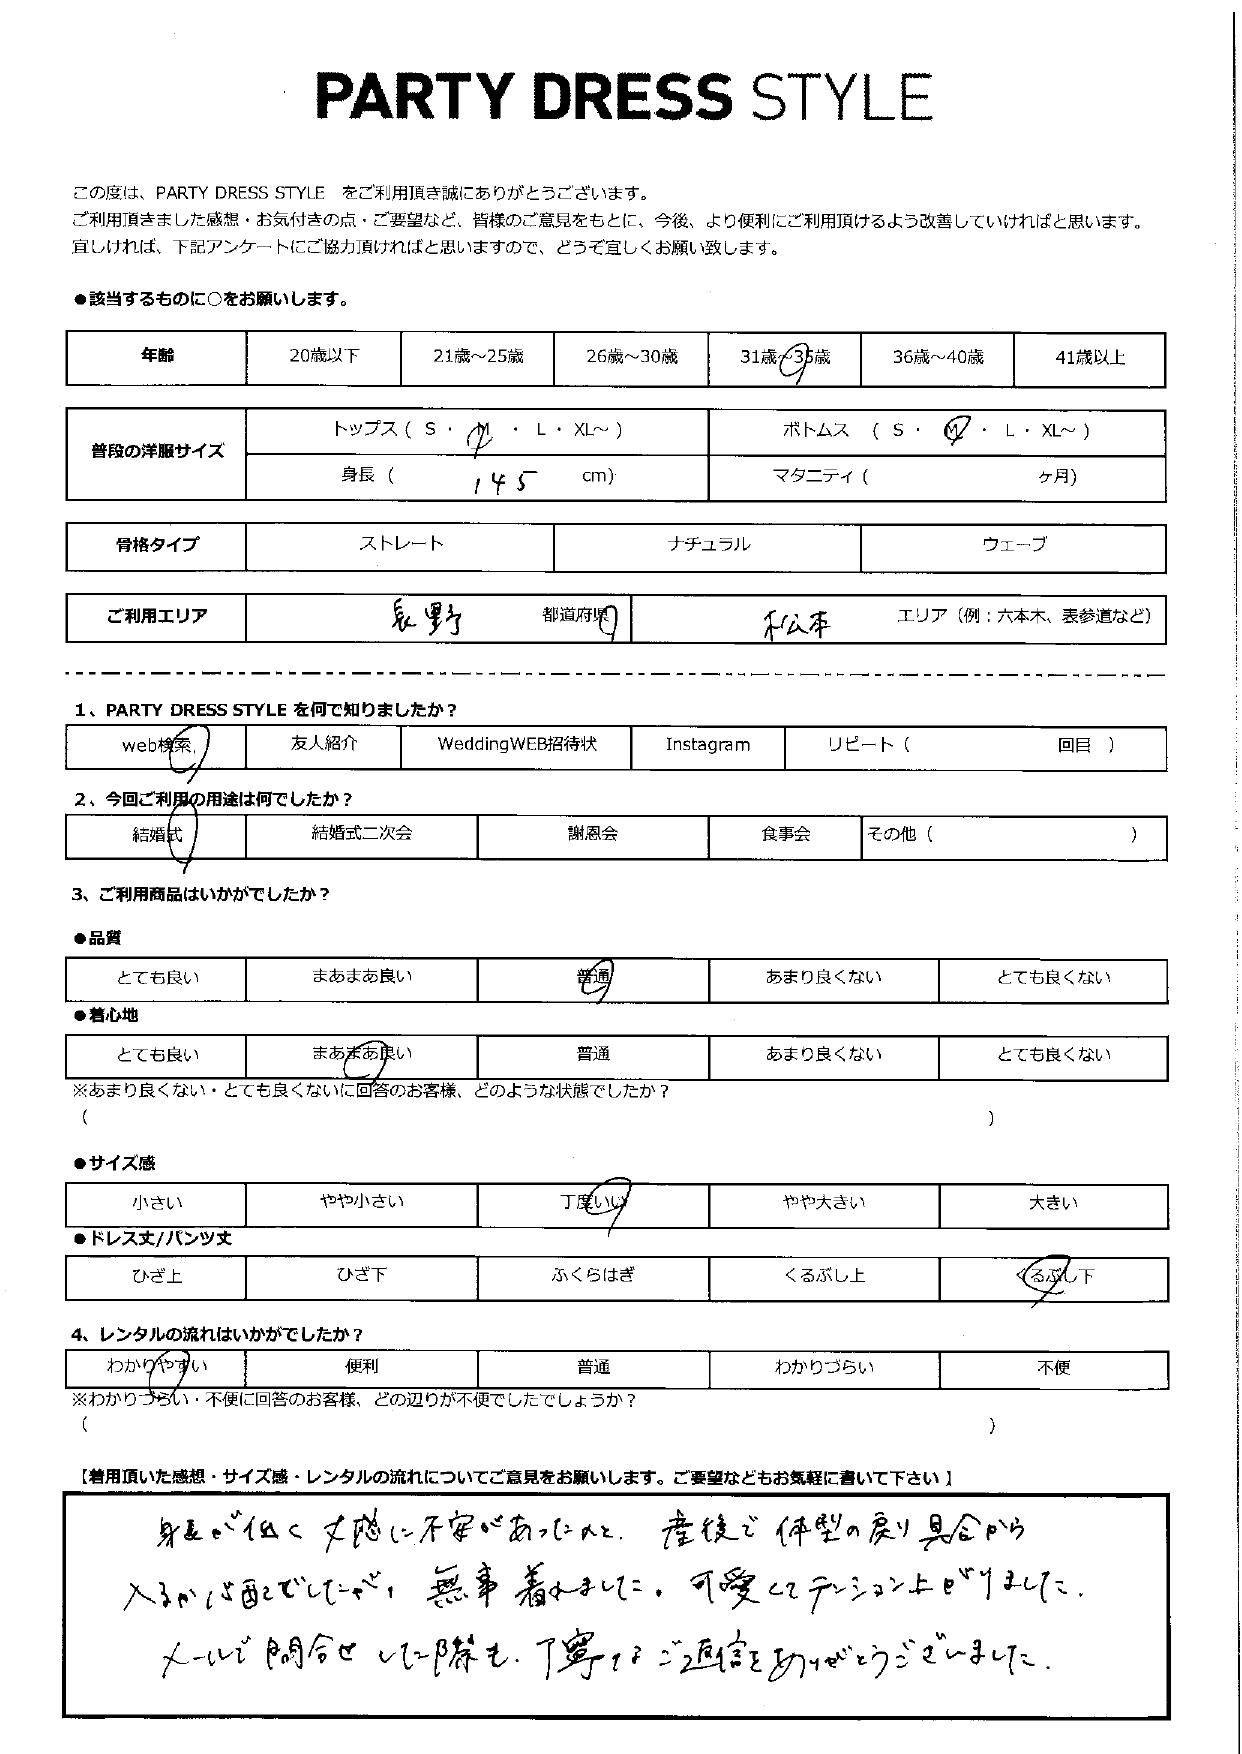 PARTY DRESS STYLE
この度は、PARTY DRESS STYLE をご利用頂き誠にありがとうございます。
ご利用頂きました感想・お気付きの点・ご要望など、皆様のご意見をもとに、今後、より便利にご利用頂けるよう改善していければと思います。
宜しければ、下記アンケートにご協力頂ければと思いますので、どうぞ宜しくお願い致します。
●該当するものに○をお願いします。
年齢 20歳以下 21歳～25歳 26歳～30歳 31歳～35歳 36歳～40歳 41歳以上
普段の洋服サイズ トップス ( S ・ M ・ L ・ XL～ ) ボトムス ( S ・ M ・ L ・ XL～ )
身長 ( 145 cm) マタニティ ( ヶ月)
骨格タイプ ストレート ナチュラル ウェーブ
ご利用エリア 長野 都道府県 松本 エリア（例：六本木、表参道など）
1、PARTY DRESS STYLE を何で知りましたか？
web検索 友人紹介 WeddingWEB招待状 Instagram リピート ( 回目 )
2、今回ご利用の用途は何でしたか？
結婚式 結婚式二次会 謝恩会 食事会 その他 ( )
3、ご利用商品はいかがでしたか？
●品質
とても良い まあまあ良い 普通 あまり良くない とても良くない
●着心地
とても良い まあまあ良い 普通 あまり良くない とても良くない
※あまり良くない・とても良くないに回答のお客様、どのような状態でしたか？
( )
●サイズ感
小さい やや小さい 丁度いい やや大きい 大きい
●ドレス丈/パンツ丈
ひざ上 ひざ下 ふくらはぎ くるぶし上 くるぶし下
4、レンタルの流れはいかがでしたか？
わかりやすい 便利 普通 わかりづらい 不便
※わかりづらい・不便に回答のお客様、どの辺りが不便でしたでしょうか？
( )
【着用頂いた感想・サイズ感・レンタルの流れについてご意見をお願いします。ご要望などもお気軽に書いて下さい】
身長が低く丈感に不安があったのと、産後で体型の戻り具合から
入るか心配でしたが、無事着れました。可愛くてテンション上がりました。
メールで問合せした際も、丁寧なご返信をありがとうございました。